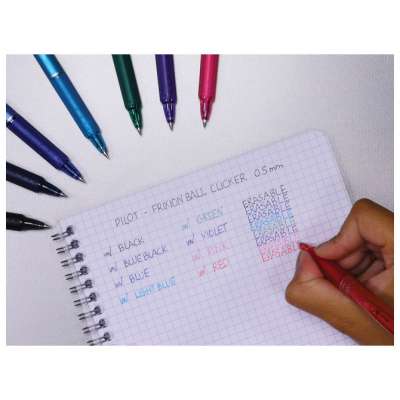 PILOT - FRIXION BALL CLICKER 0.5mm
w/ BLACK
w/ BLUE BLACK
w/ BLUE
w/ LIGHT BLUE
w/ GREEN
w/ VIOLET
w/ PINK
w/ RED
ERASABLE
ERASABLE
ERASABLE
ERASABLE
ERASABLE
ERASABLE
ERASABLE
ERASABLE